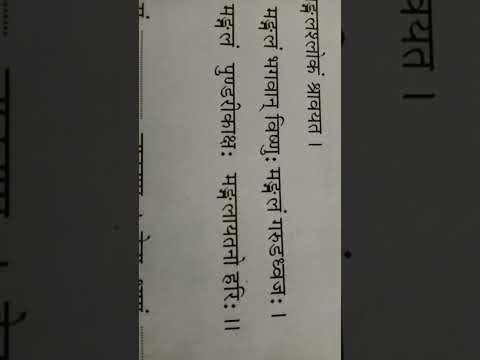 ङ्गलश्लोकं श्रावयत ।
मङ्गलं भगवान् विष्णुः मङ्गलं गरुडध्वजः ।
मङ्गलं पुण्डरीकाक्षः मङ्गलायतनो हरिः ॥